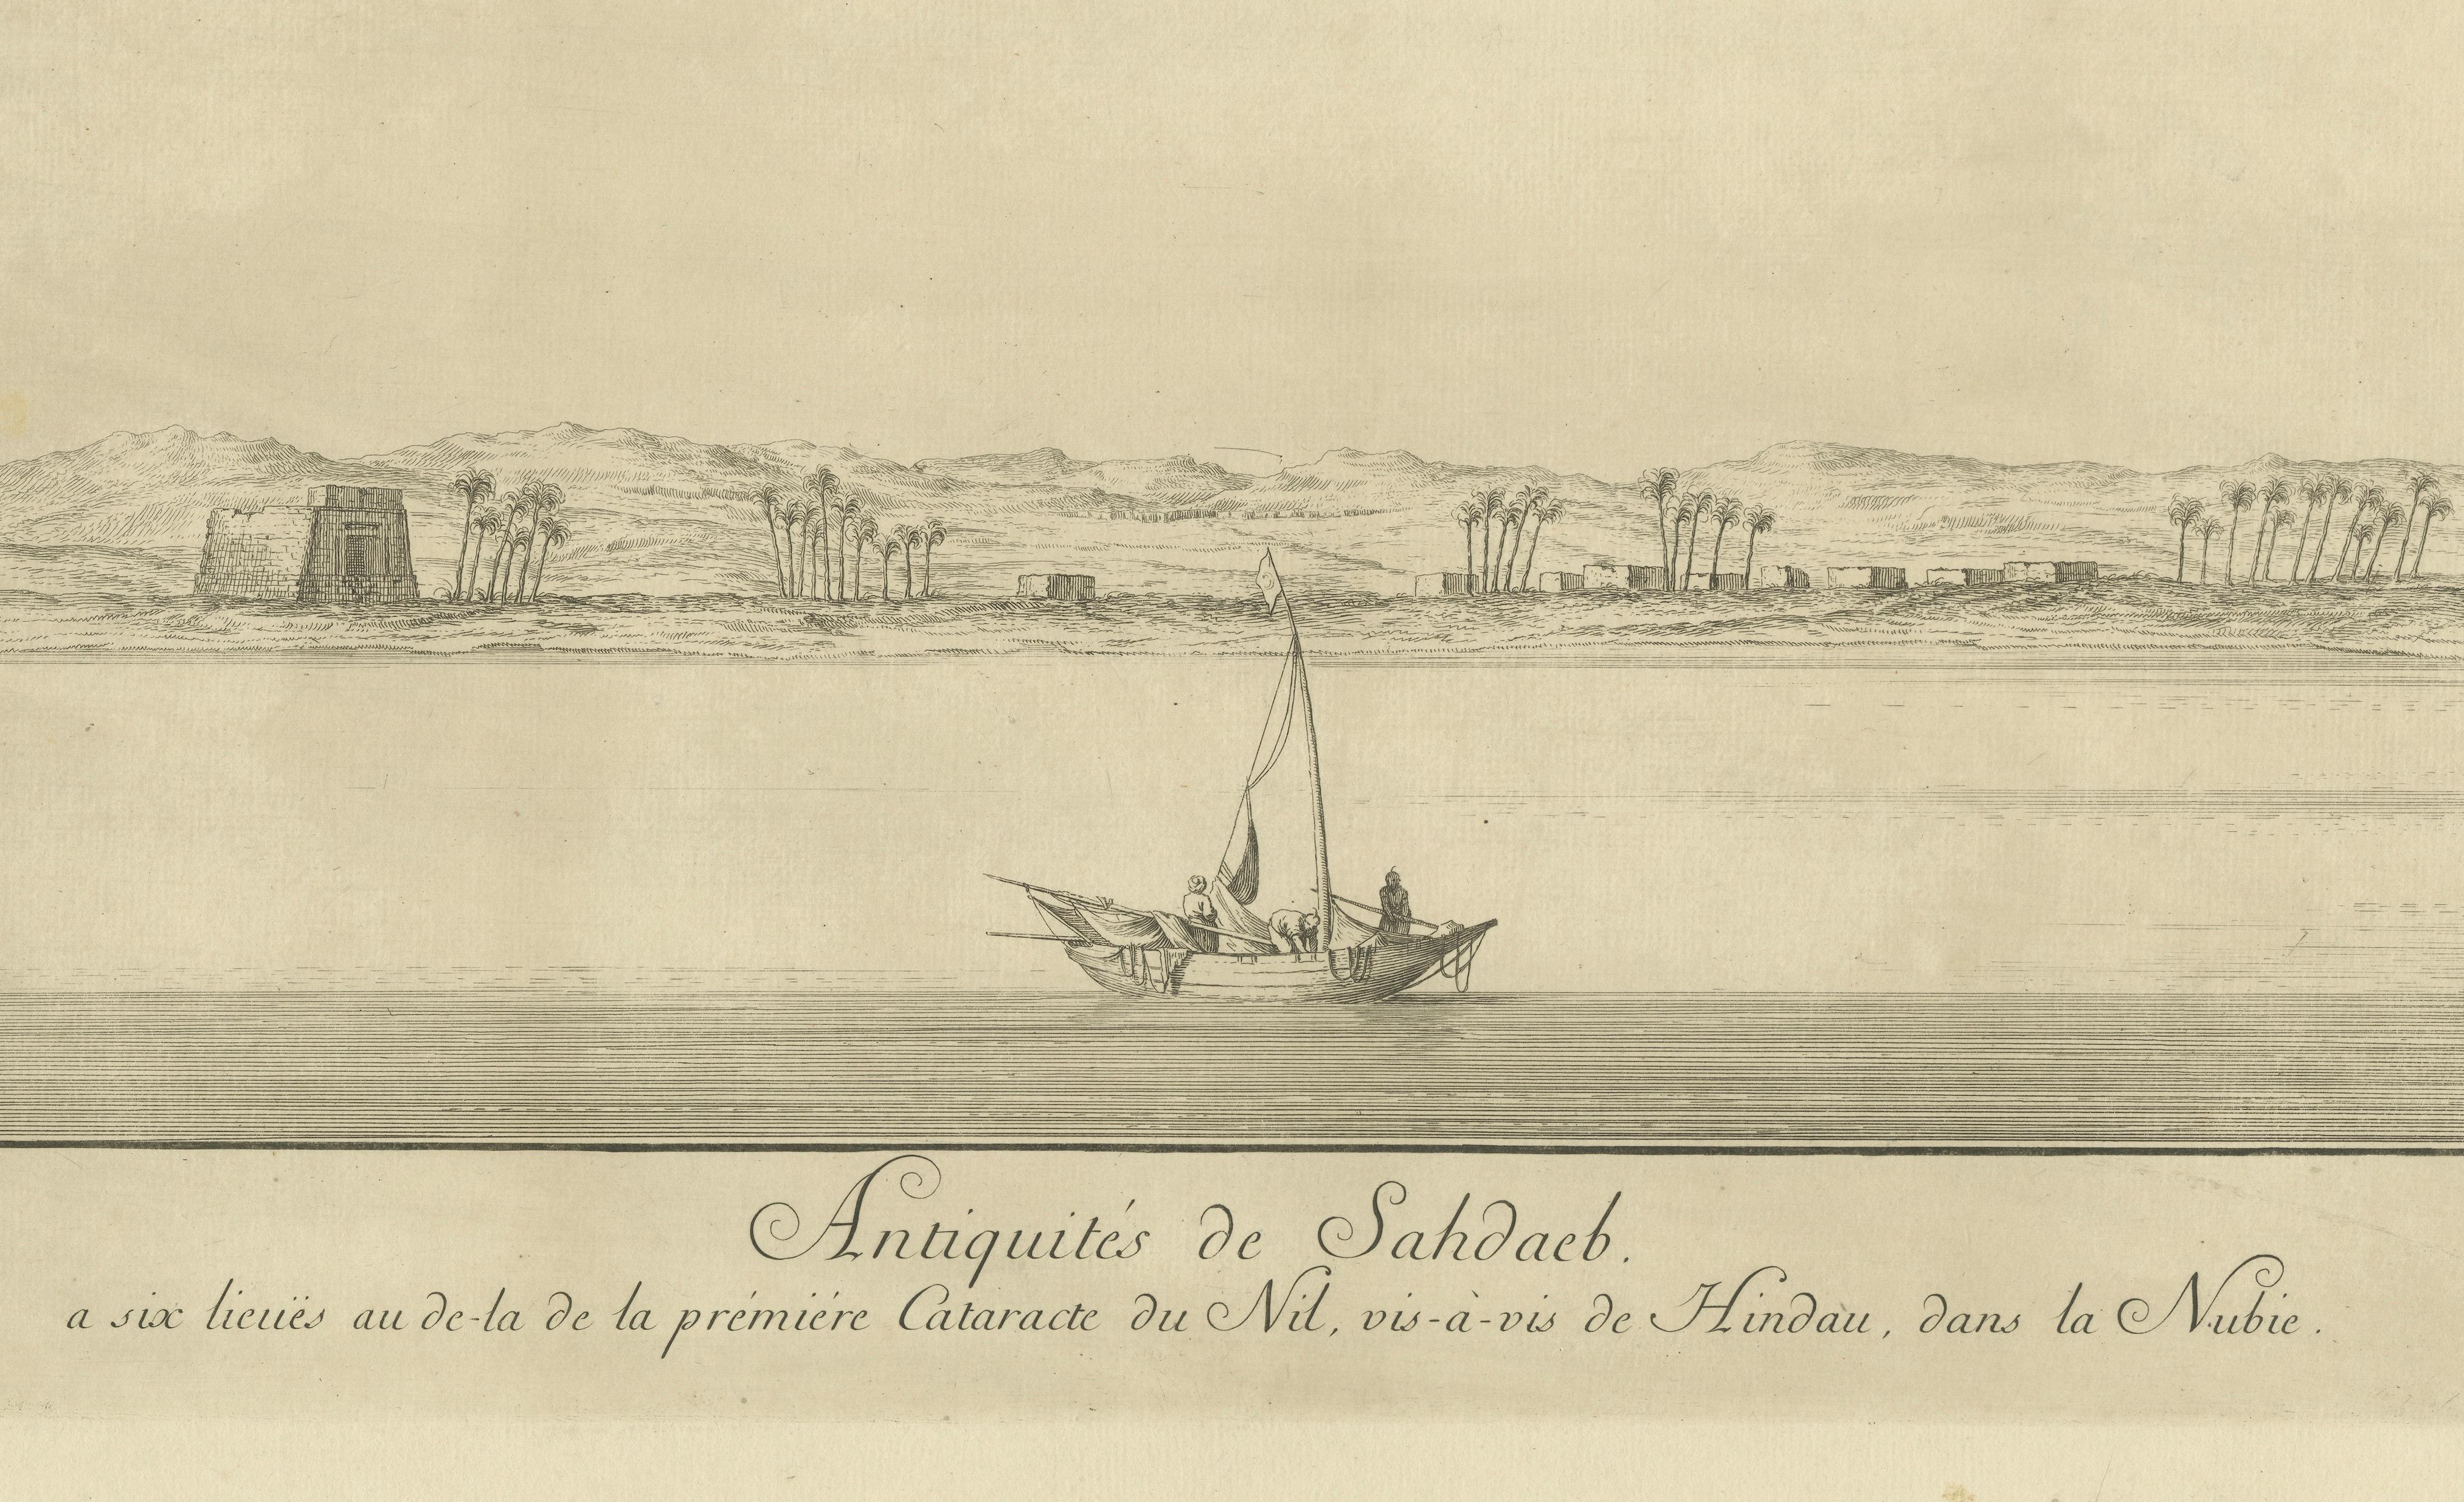 Antiquités de Sahdaeb.
a six lieuës au de-la de la prémiére Cataracte du Nil, vis-à-vis de Hindàu, dans la Nubie.